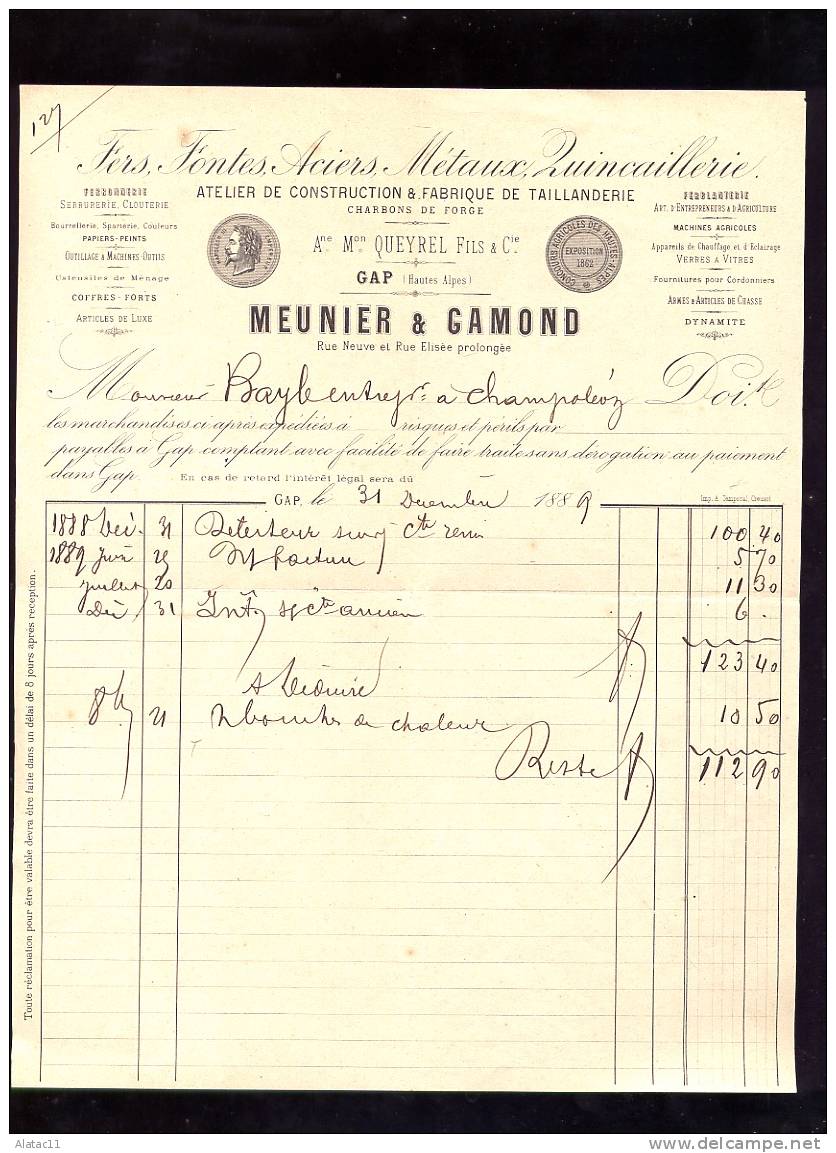 127
Fers, Fontes, Aciers, Métaux, Quincaillerie.
ATELIER DE CONSTRUCTION & FABRIQUE DE TAILLANDERIE
CHARBONS DE FORGE
FERRONNERIE
SERRURERIE, CLOUTERIE
Bourrellerie, Sparterie, Couleurs
PAPIERS-PEINTS
OUTILLAGE & MACHINES-OUTILS
Ustensiles de Ménage
COFFRES-FORTS
ARTICLES DE LUXE
NAPOLEON III EMPEREUR
Ane Mon QUEYREL FILS & Cie
GAP (Hautes Alpes)
CONCOURS AGRICOLES DES HAUTES-ALPES
EXPOSITION
1862
FERBLANTERIE
ART. D'ENTREPRENEURS & D'AGRICULTURE
MACHINES AGRICOLES
Appareils de Chauffage et d'Eclairage
VERRES A VITRES
Fournitures pour Cordonniers
ARMES & ARTICLES DE CHASSE
DYNAMITE
MEUNIER & GAMOND
Rue Neuve et Rue Elisée prolongée
Monsieur Bayle entrepr. à Champoléoz Doit
les marchandises ci après expédiées à risques et périls par
payables à Gap comptant avec facilité de faire traite sans dérogation au paiement
dans Gap. En cas de retard l'intérêt légal sera dû
GAP, le 31 Décembre 1889
Imp. A. Temporal, Creusot
1888 Déc. 31 cte remis 100 40
1889 Juin 25 N/ facture 5 70
Juillet 20 11 30
Déc 31 Int. s/ cte ancien 6 .
123 40
A Déduire
8b 21 de chaleur 10 50
Reste 112 90
Toute réclamation pour être valable devra être faite dans un délai de 8 jours après réception.
Alatac11
www.delcampe.net